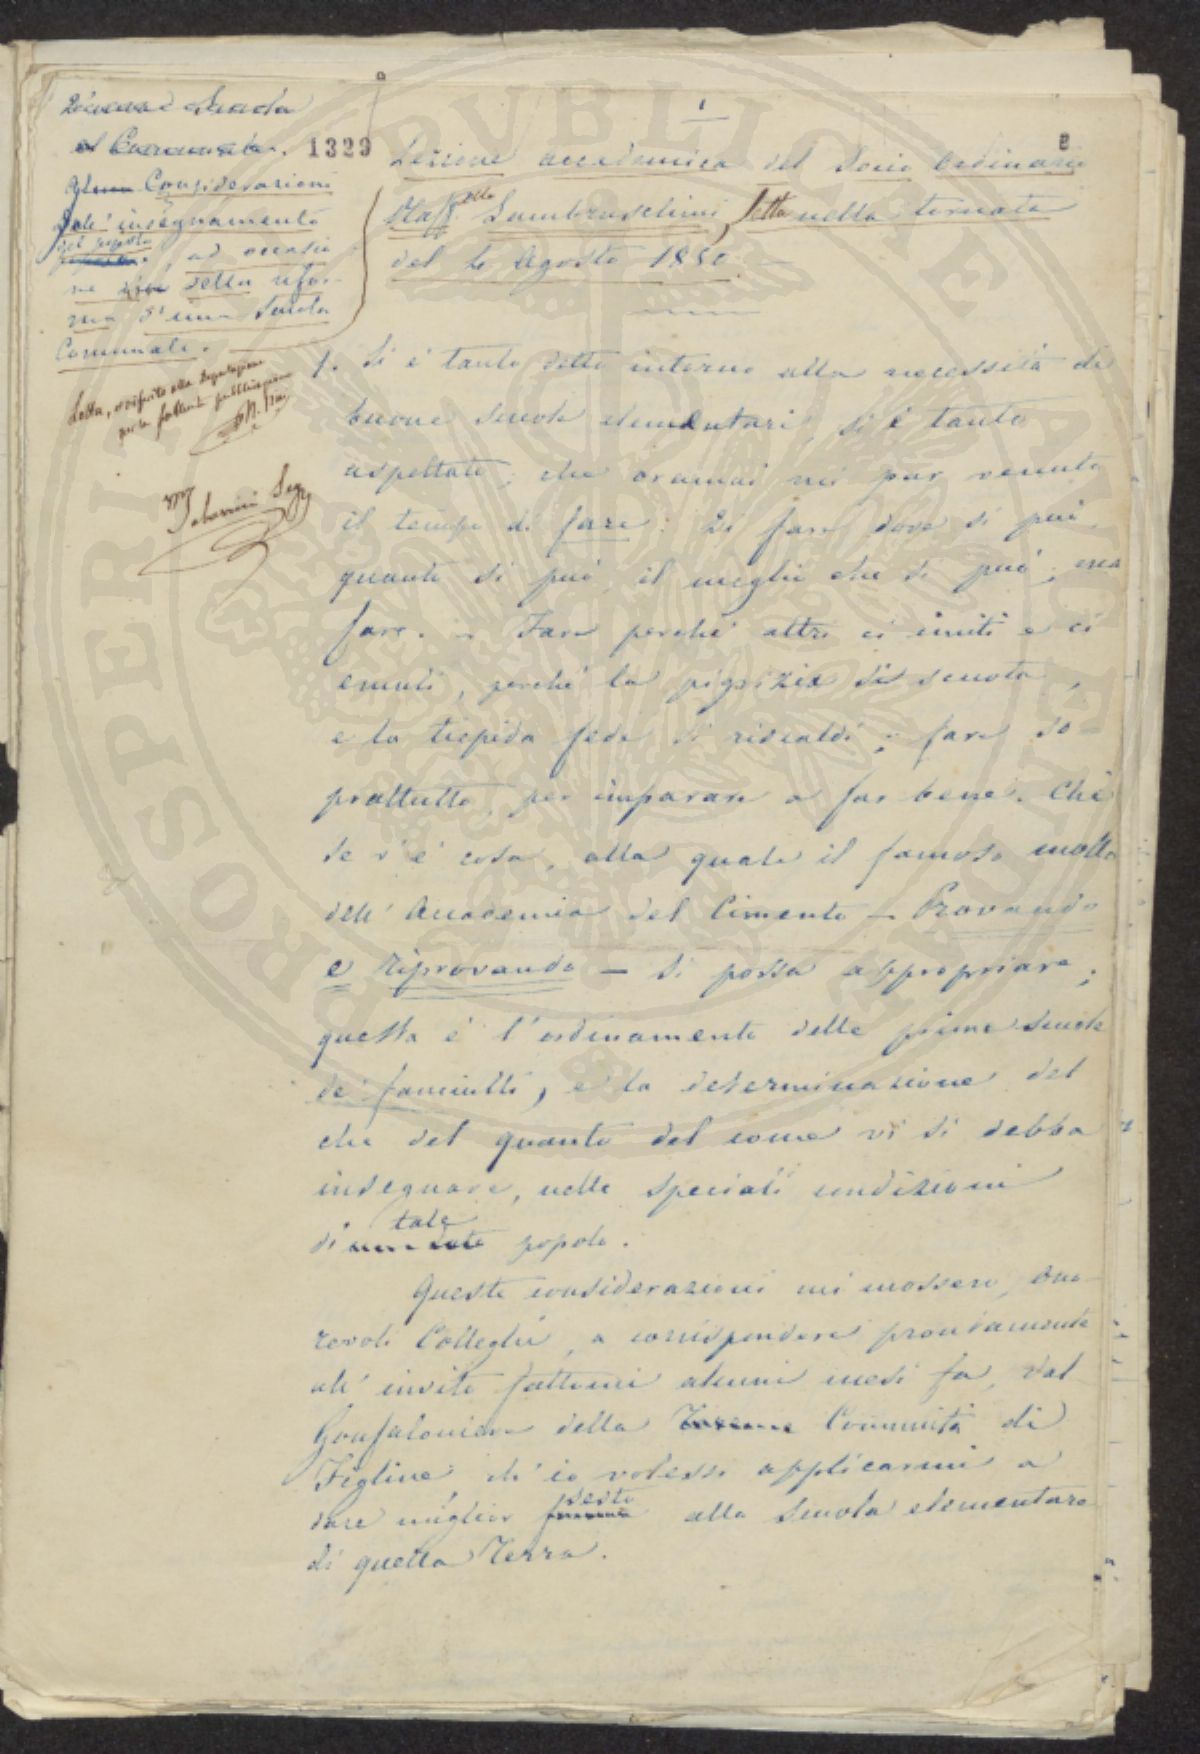 1329
Considerazioni
sull' insegnamento
del popolo
ad occasio
ne della rifor-
ma d'una Scuola
Comunale.
Letta, e riferito alla Deputazione
per la pubblicazione
Tabarrini Seg.
1
2
Lezione accademica del Socio Ordinario
Raff.ello Lambruschini, letta nella tornata
del 4 Agosto 1850 —
1. Si è tanto detto intorno alla necessità di
buone scuole elementari, si è tanto
aspettato; che oramai mi par venuto
il tempo di fare: di fare dove si può
quanto si può, il meglio che si può; ma
fare. – Fare perchè altri ci imiti e ci
emuli, perchè la pigrizia si scuota,
e la tiepida fede si riscaldi; fare so-
prattutto, per imparare a far bene. Chè
se v'è cosa, alla quale il famoso motto
dell' Accademia del Cimento – Provando
e riprovando – si possa appropriare,
questa è l'ordinamento delle prime scuole
de' fanciulli, e la determinazione del
che del quanto del come vi si debba
insegnare, nelle speciali condizioni
di tale popolo.
Queste considerazioni mi mossero, Ono-
revoli Colleghi, a corrispondere prontamente
all' invito fattomi alcuni mesi fa, dal
Gonfaloniere della Comunità di
Figline, ch' io volessi applicarmi a
dare miglior sesto alla Scuola elementare
di quella Terra.
PROSPERITATI PVBLICAE AVGENDAE